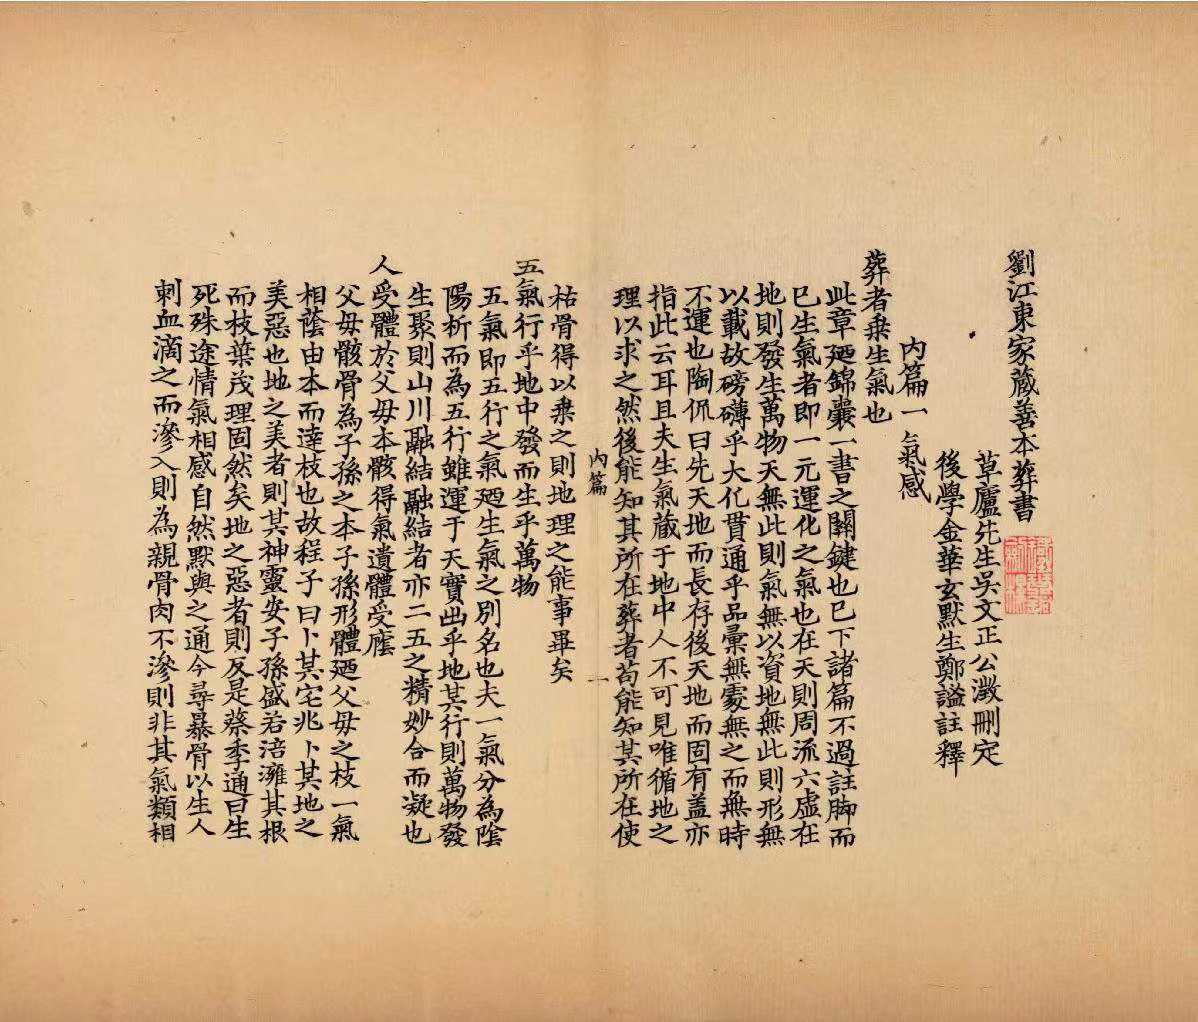 劉江東家藏善本葬書
草廬先生吳文正公澂刪定
後學金華玄默生鄭謐註釋
內篇一 氣感
葬者乗生氣也
此章廼錦囊一書之關鍵也已下諸篇不過註脚而
已生氣者即一元運化之氣也在天則周流六虛在
地則發生萬物天無此則氣無以資地無此則形無
以載故磅礴乎大化貫通乎品彙無處無之而無時
不運也陶侃曰先天地而長存後天地而固有盖亦
指此云耳且夫生氣藏于地中人不可見唯循地之
理以求之然後能知其所在葬者苟能知其所在使
內篇 一
枯骨得以乗之則地理之能事畢矣
五氣行乎地中發而生乎萬物
五氣即五行之氣廼生氣之別名也夫一氣分為陰
陽析而為五行雖運于天實出乎地其行則萬物發
生聚則山川融結融結者亦二五之精妙合而凝也
人受體於父母本骸得氣遺體受廕
父母骸骨為子孫之本子孫形體廼父母之枝一氣
相蔭由本而達枝也故程子曰卜其宅兆卜其地之
美惡也地之美者則其神靈安子孫盛若涪灕其根
而枝葉茂理固然矣地之惡者則反是蔡季通曰生
死殊途情氣相感自然默與之通今尋暴骨以生人
刺血滴之而滲入則為親骨肉不滲則非其氣類相